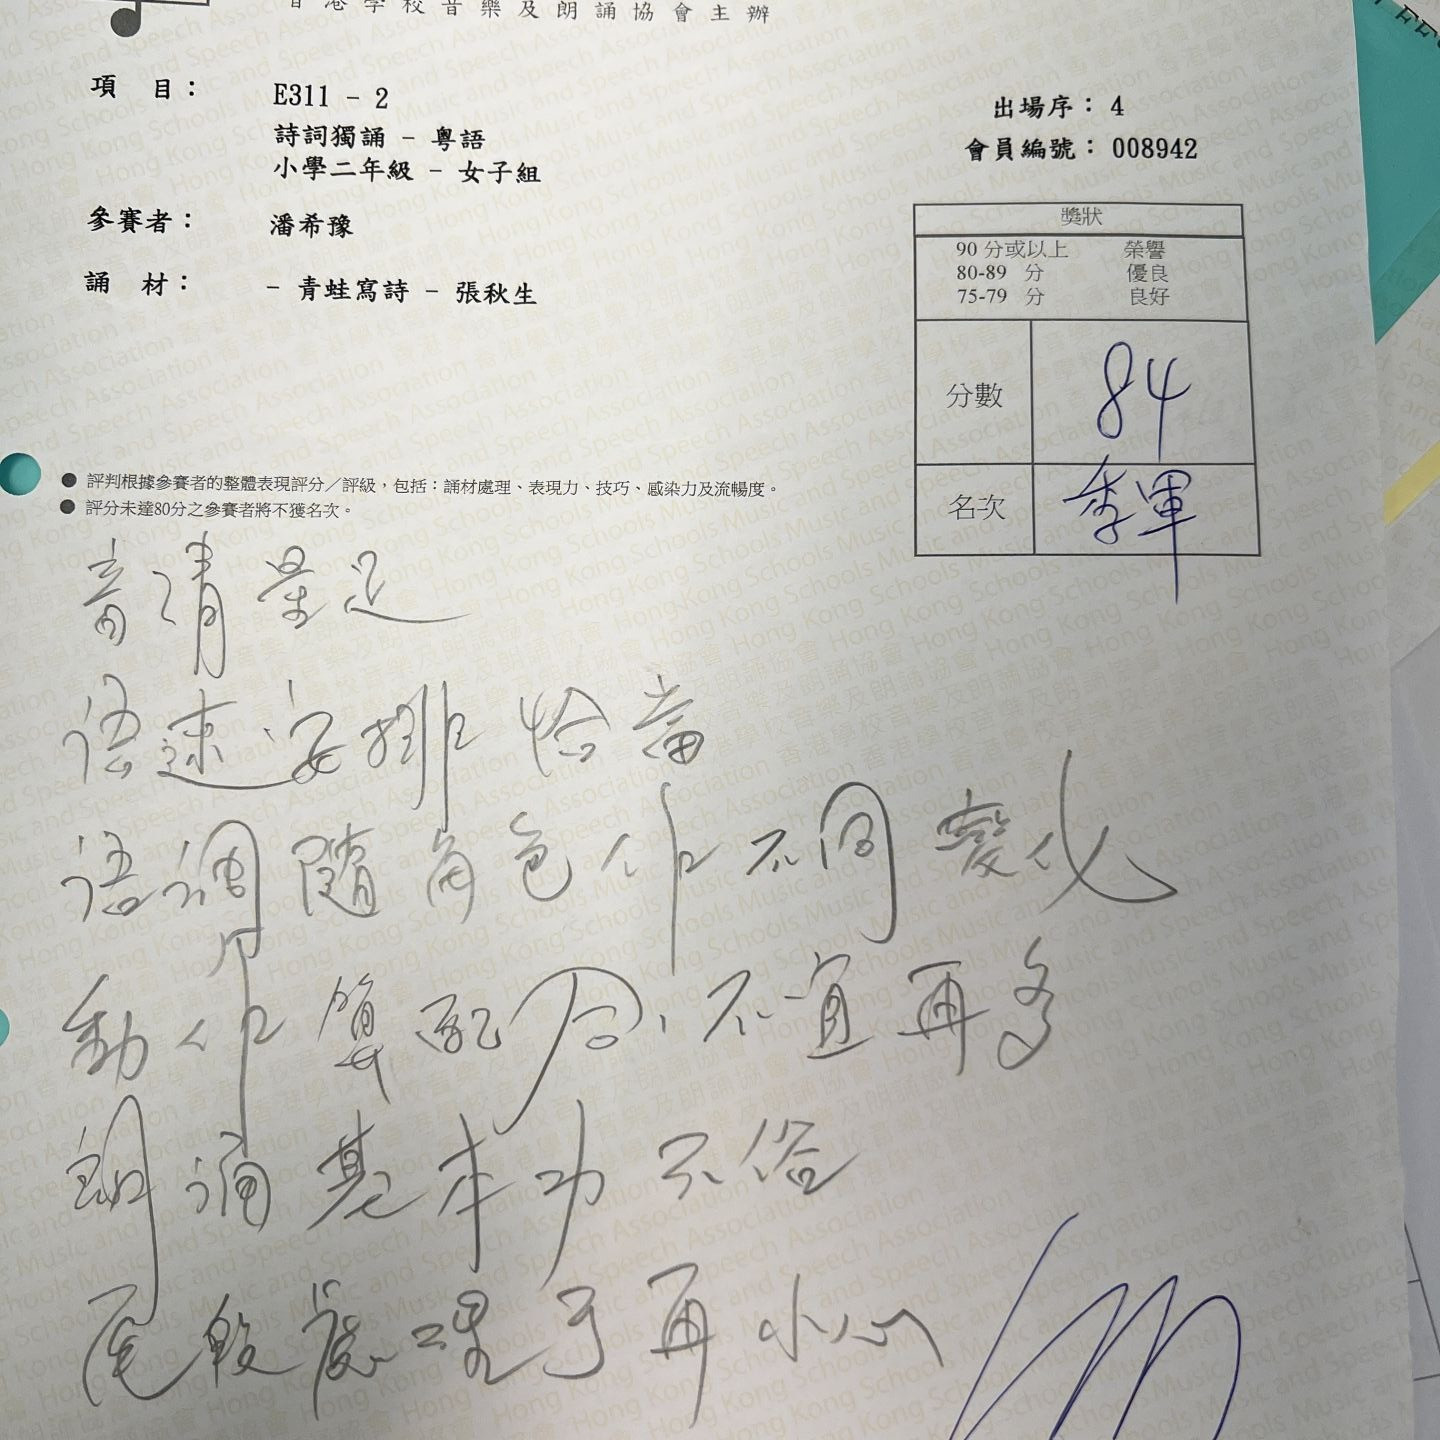 香港學校音樂及朗誦協會主辦
項 目： E311 - 2
詩詞獨誦 - 粵語
小學二年級 - 女子組
出場序： 4
會員編號： 008942
參賽者： 潘希豫
誦 材： - 青蛙寫詩 - 張秋生
獎狀
90 分或以上 榮譽
80-89 分 優良
75-79 分 良好
分數 84
名次 季軍
● 評判根據參賽者的整體表現評分／評級，包括：誦材處理、表現力、技巧、感染力及流暢度。
● 評分未達80分之參賽者將不獲名次。
音清量足
语速安排恰當
语调隨角色作不同變化
動作算配合，不宜再多
朗诵基本功不俗
尾段處理可再小心